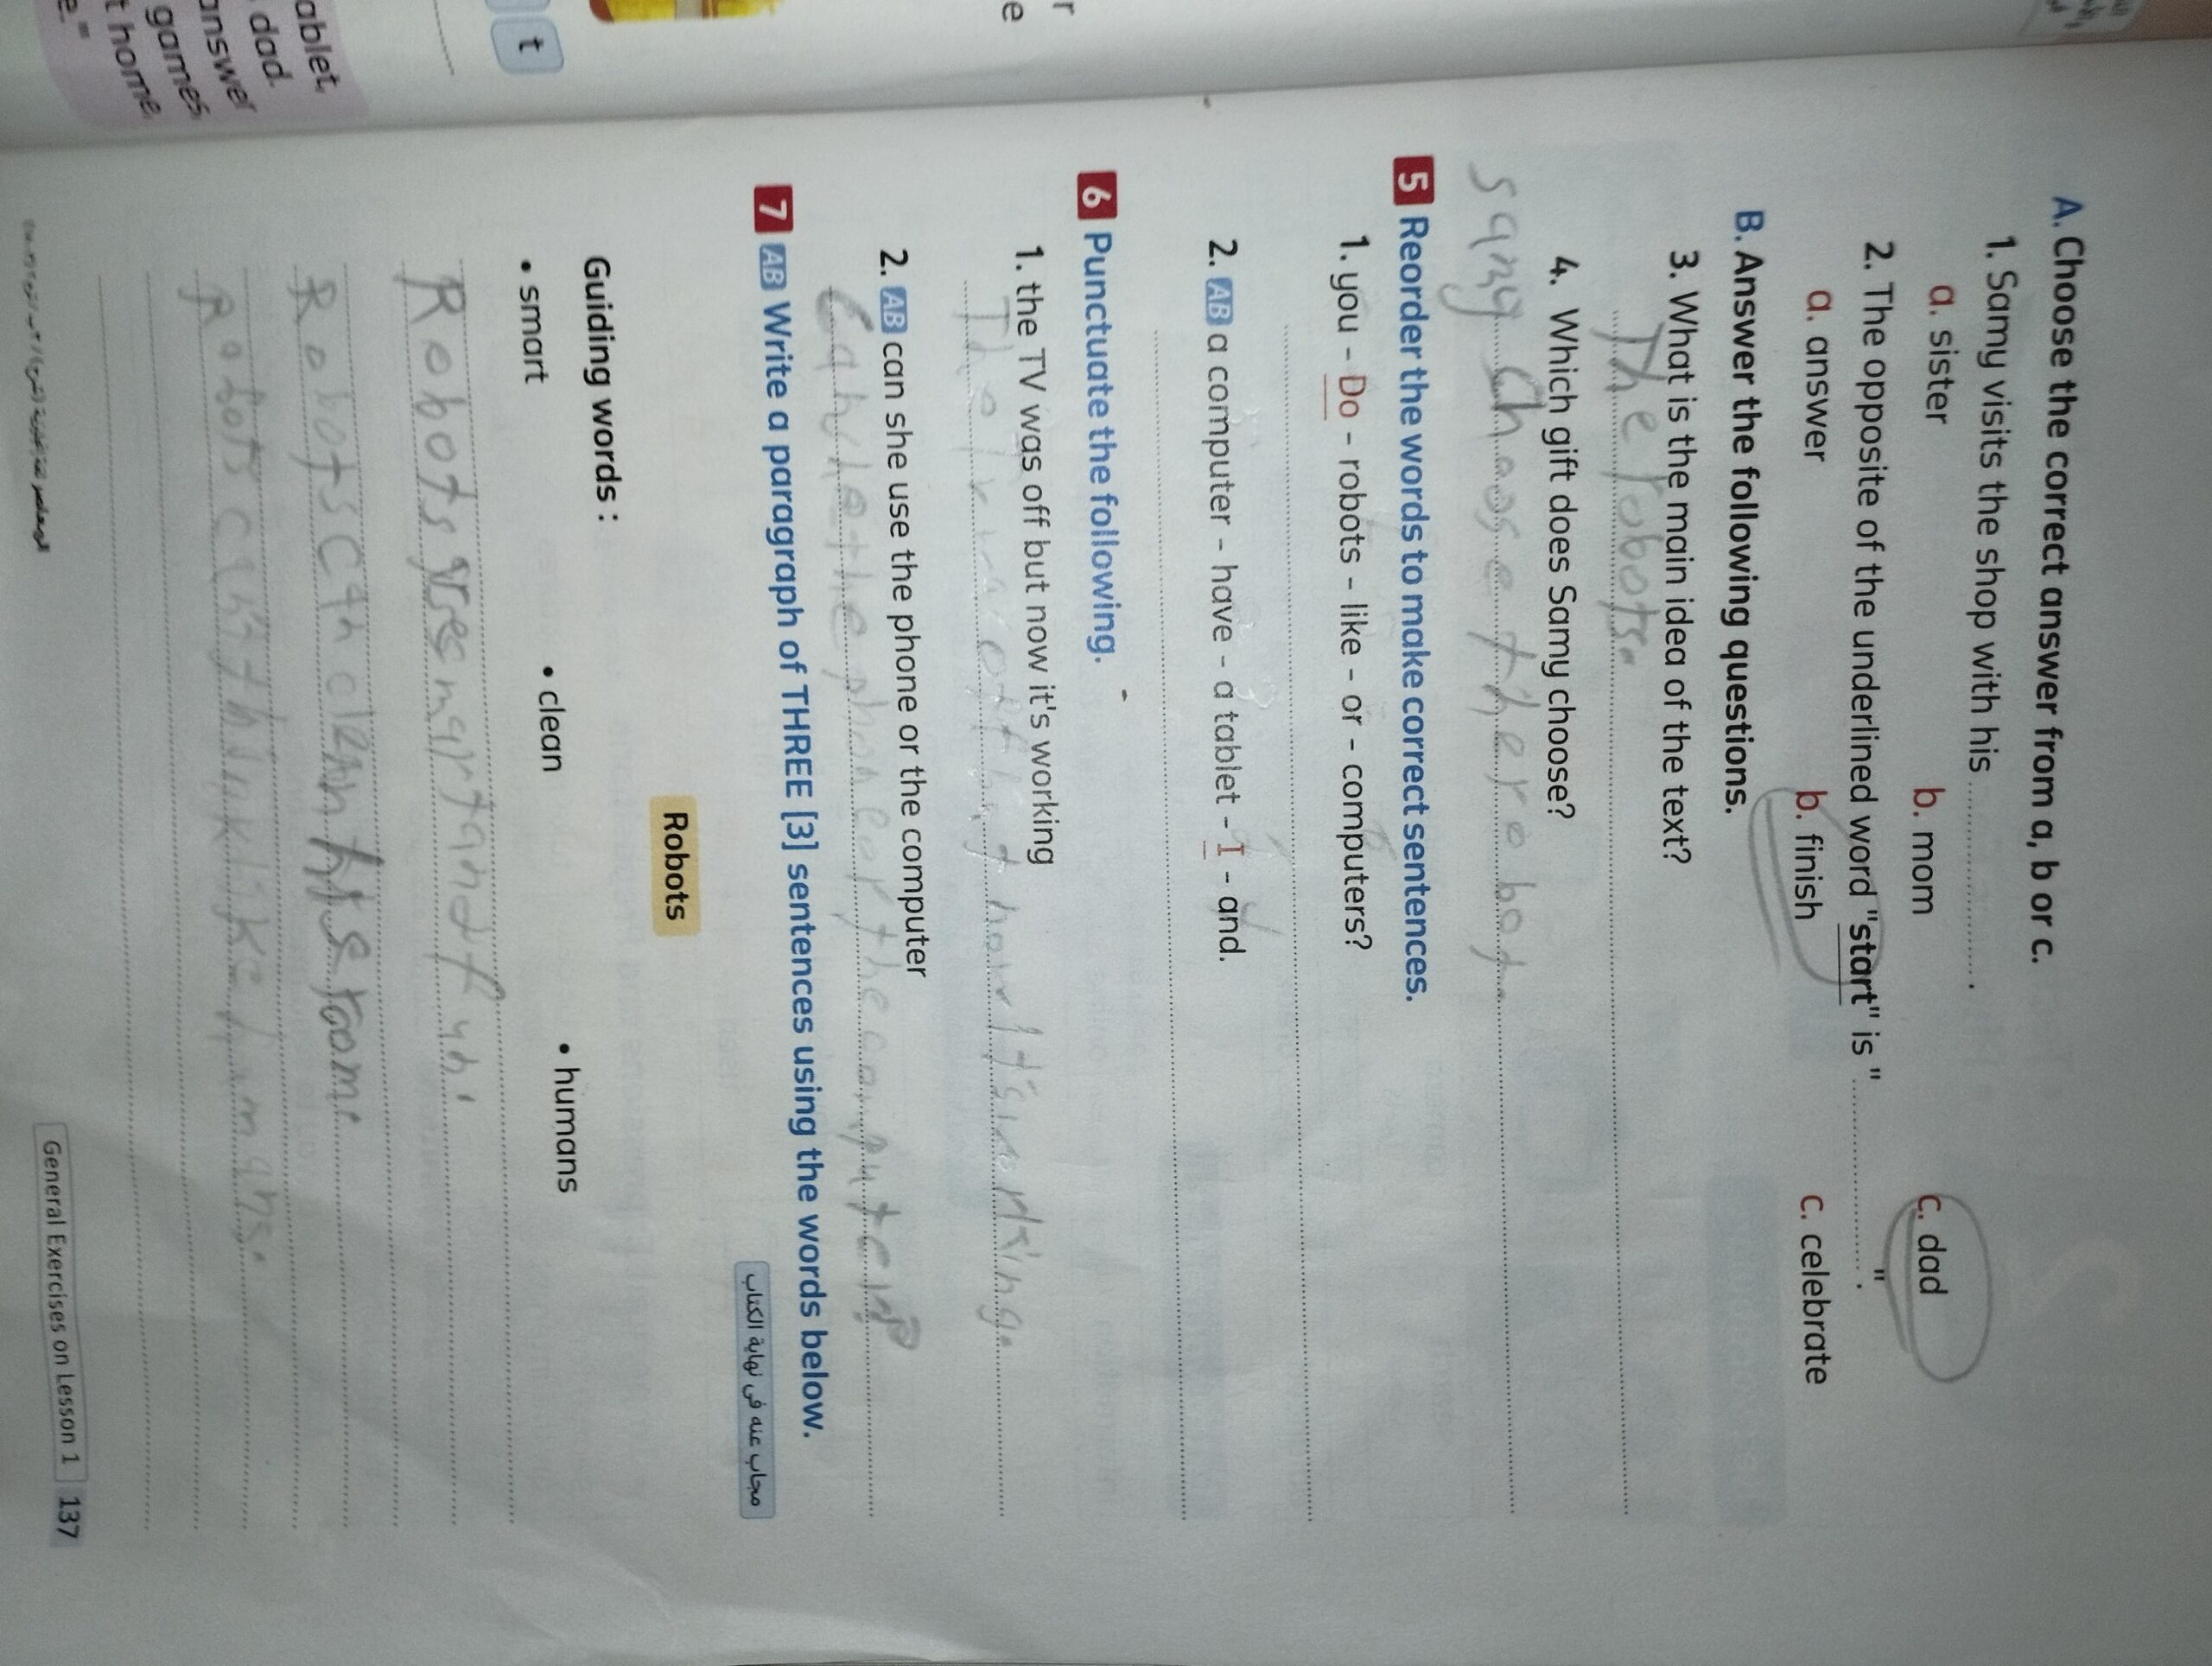 ablet,
dad.
answer
games
t home.
e."
t
r
e
A. Choose the correct answer from a, b or c.
1. Samy visits the shop with his .
a. sister b. mom c. dad
2. The opposite of the underlined word "start" is " ".
a. answer b. finish c. celebrate
B. Answer the following questions.
3. What is the main idea of the text?
The robots.
4. Which gift does Samy choose?
samy choose the robot.
5 Reorder the words to make correct sentences.
1. you - Do - robots - like - or - computers?
2. AB a computer - have - a tablet - I - and.
6 Punctuate the following.
1. the TV was off but now it's working
The TV was off but now it's working.
2. AB can she use the phone or the computer
the phone or the computer?
7 AB Write a paragraph of THREE [3] sentences using the words below.
مجاب عنه فى نهاية الكتاب
Robots
Guiding words :
• smart • clean • humans
Robots smart and fun.
Robots can clean the room.
Robots can't think like humans.
General Exercises on Lesson 1 137